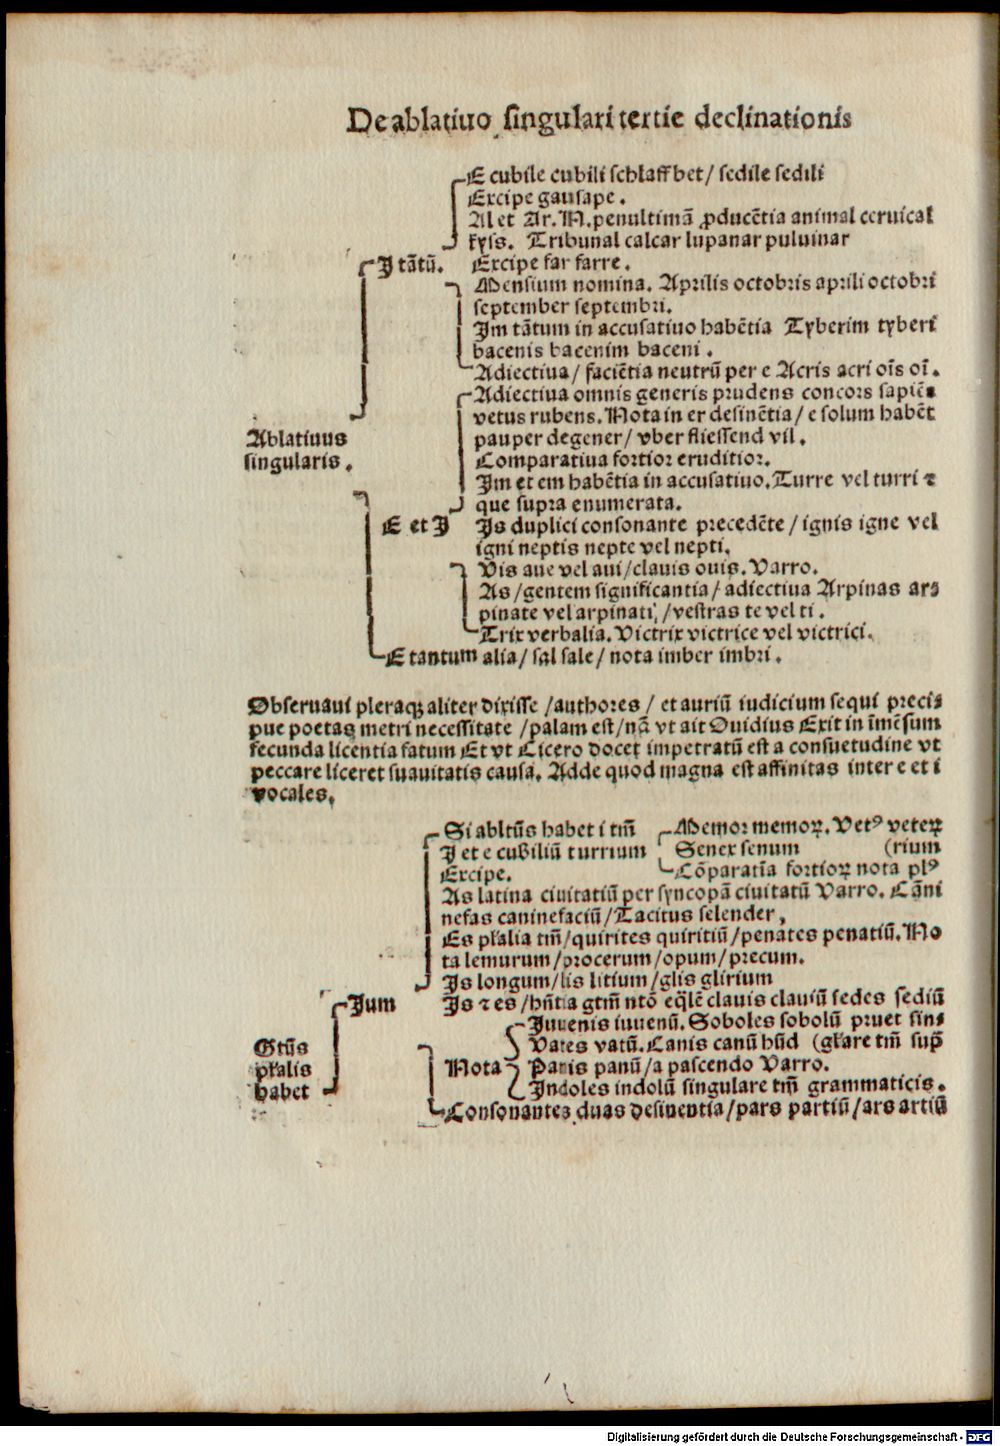 De ablatiuo singulari tertie declinationis
E cubile cubili schlaffbet/ sedile sedili
Excipe gausape.
Al et Ar. N. penultimā ꝓducētia animal ceruical
kyss. Tribunal calcar lupanar puluinar
I tātū. Excipe far farre.
Mensium nomina. Aprilis octobris aprili octobri
september septembri.
Im tātum in accusatiuo habētia Tyberim tyberi
bacenis bacenim baceni.
Adiectiua/ faciētia neutrū per e Acris acri oīs oī.
Adiectiua omnis generis prudens concors sapiēs
vetus rubens. Nota in er desinētia/ e solum habēt
Ablatiuus pauper degener/ vber fliessend vil.
singularis. Comparatiua fortior eruditior.
Im et em habētia in accusatiuo. Turre vel turri ⁊
que supra enumerata.
E et I Is duplici consonante precedēte/ ignis igne vel
igni neptis nepte vel nepti.
Vis aue vel aui/clauis ouis. Varro.
As/gentem significantia/ adiectiua Arpinas ar⸗
pinate vel arpinati,/vestras te vel ti.
Trix verbalia. Victrix victrice vel victrici.
E tantum alia/ sal sale/ nota imber imbri.
Obseruaui pleraqꝫ aliter dixisse /authores/ et auriū iudicium sequi preci⸗
pue poetas metri necessitate /palam est/nā vt ait Ouidius Exit in īmēsum
fecunda licentia fatum Et vt Cicero docet impetratū est a consuetudine vt
peccare liceret suauitatis causa. Adde quod magna est affinitas inter e et i
vocales.
Si abltūs habet i tm̄ Memor memoꝝ. Vetꝰ veteꝝ
I et e cubiliū turrium Senex senum (rium
Excipe. Cōparatīa fortioꝝ nota plꝰ
As latina ciuitatiū per syncopā ciuitatū Varro. Cāni
nefas caninefaciū/Tacitus selender,
Es pl̄alia tm̄/quirites quiritiū/penates penatiū. No
ta lemurum/procerum/opum/precum.
Is longum/lis litium/glis glirium
Ium Is ⁊ es/hn̄tia gtm̄ ntō eq̄lē clauis clauiū sedes sediū
Iuuenis iuuenū. Soboles sobolū pruet sin⸗
Gtūs Vates vatū. Canis canū hūd (gl̄are tm̄ sup̄
pl̄alis Nota Panis panū/a pascendo Varro.
habet Indoles indolū singulare tm̄ grammaticis.
Consonantes duas desinentia/pars partiū/ars artiū
Digitalisierung gefördert durch die Deutsche Forschungsgemeinschaft - DFG